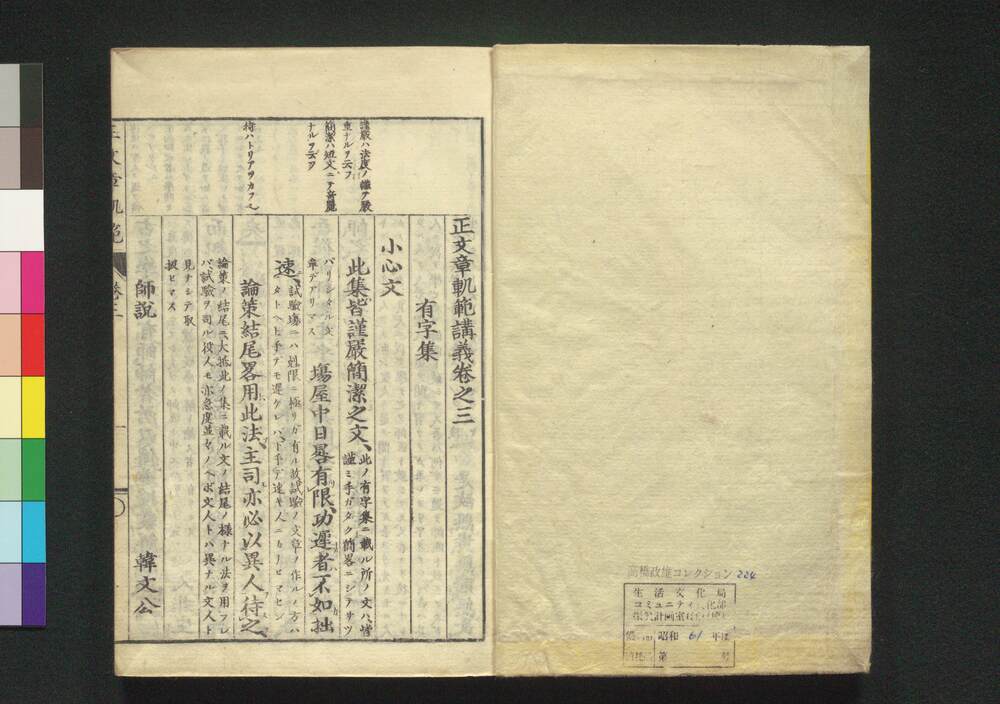 正文章軌範講義卷之三
有字集
小心文
此集皆謹嚴簡潔之文、此ノ有字集ニ載ル所ノ文ハ皆
謹ミ手ガタク簡畧ニシテサツ
パリシタル文
章デアリマス
塲屋中日晷有限、功遲者不如拙
速、試驗塲ニハ剋限ニ極リガ有ル故試驗ノ文章ノ作ルノ方ハ
タトヘ上手デモ遲ケレバ下手デ速キ人ニハ
論策結尾畧用此法、主司亦必以異人待之、
論策ノ結尾ニ大抵此ノ集ニ載ル文ノ結尾ノ樣ナル法ヲ用フレ
バ試驗ヲ司ル役人モ亦急度並々ノヘボ文人トハ異ナル文人ト
見ナシテ取
扱ヒマス
師說
韓文公
謹嚴ハ法度ノ備テ嚴
重ナルヲ云フ
簡潔ハ短文ニテ奇麗
ナルヲ云フ
待ハトリアツカフ也
正文章軌範
卷三
高橋政雄コレクション 224
生活文化局
コミュニティ文化部
昭和 61 年度
第 号